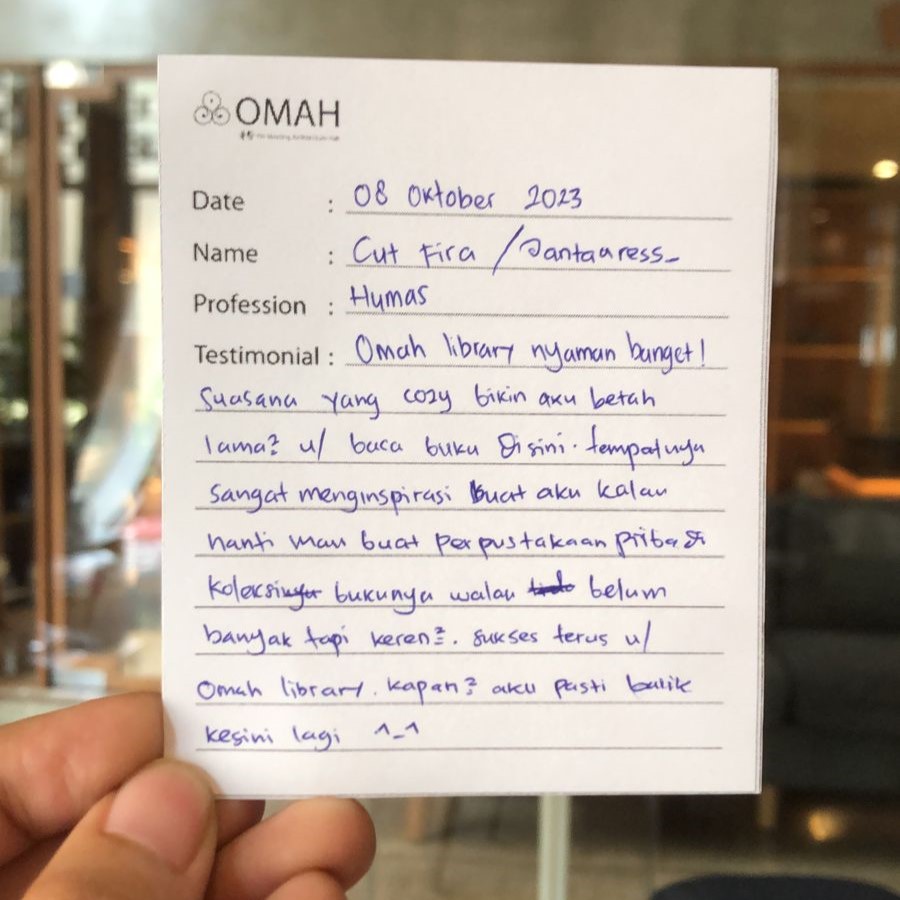 OMAH
Date : 08 Oktober 2023
Name : Cut Fira / Jantaaress_
Profession : Humas
Testimonial : Omah library nyaman banget!
Suasana yang cozy bikin aku betah
lama² u/ baca buku disini. tempatnya
sangat menginspirasi buat aku kalau
nanti mau buat perpustakaan pribadi
koleksi bukunya walau belum
banyak tapi keren². sukses terus u/
Omah library. kapan² aku pasti balik
kesini lagi ^_^